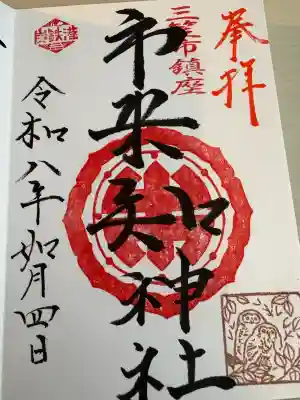 奉拝
三笠市鎮座
市来知神社
令和八年如月四日